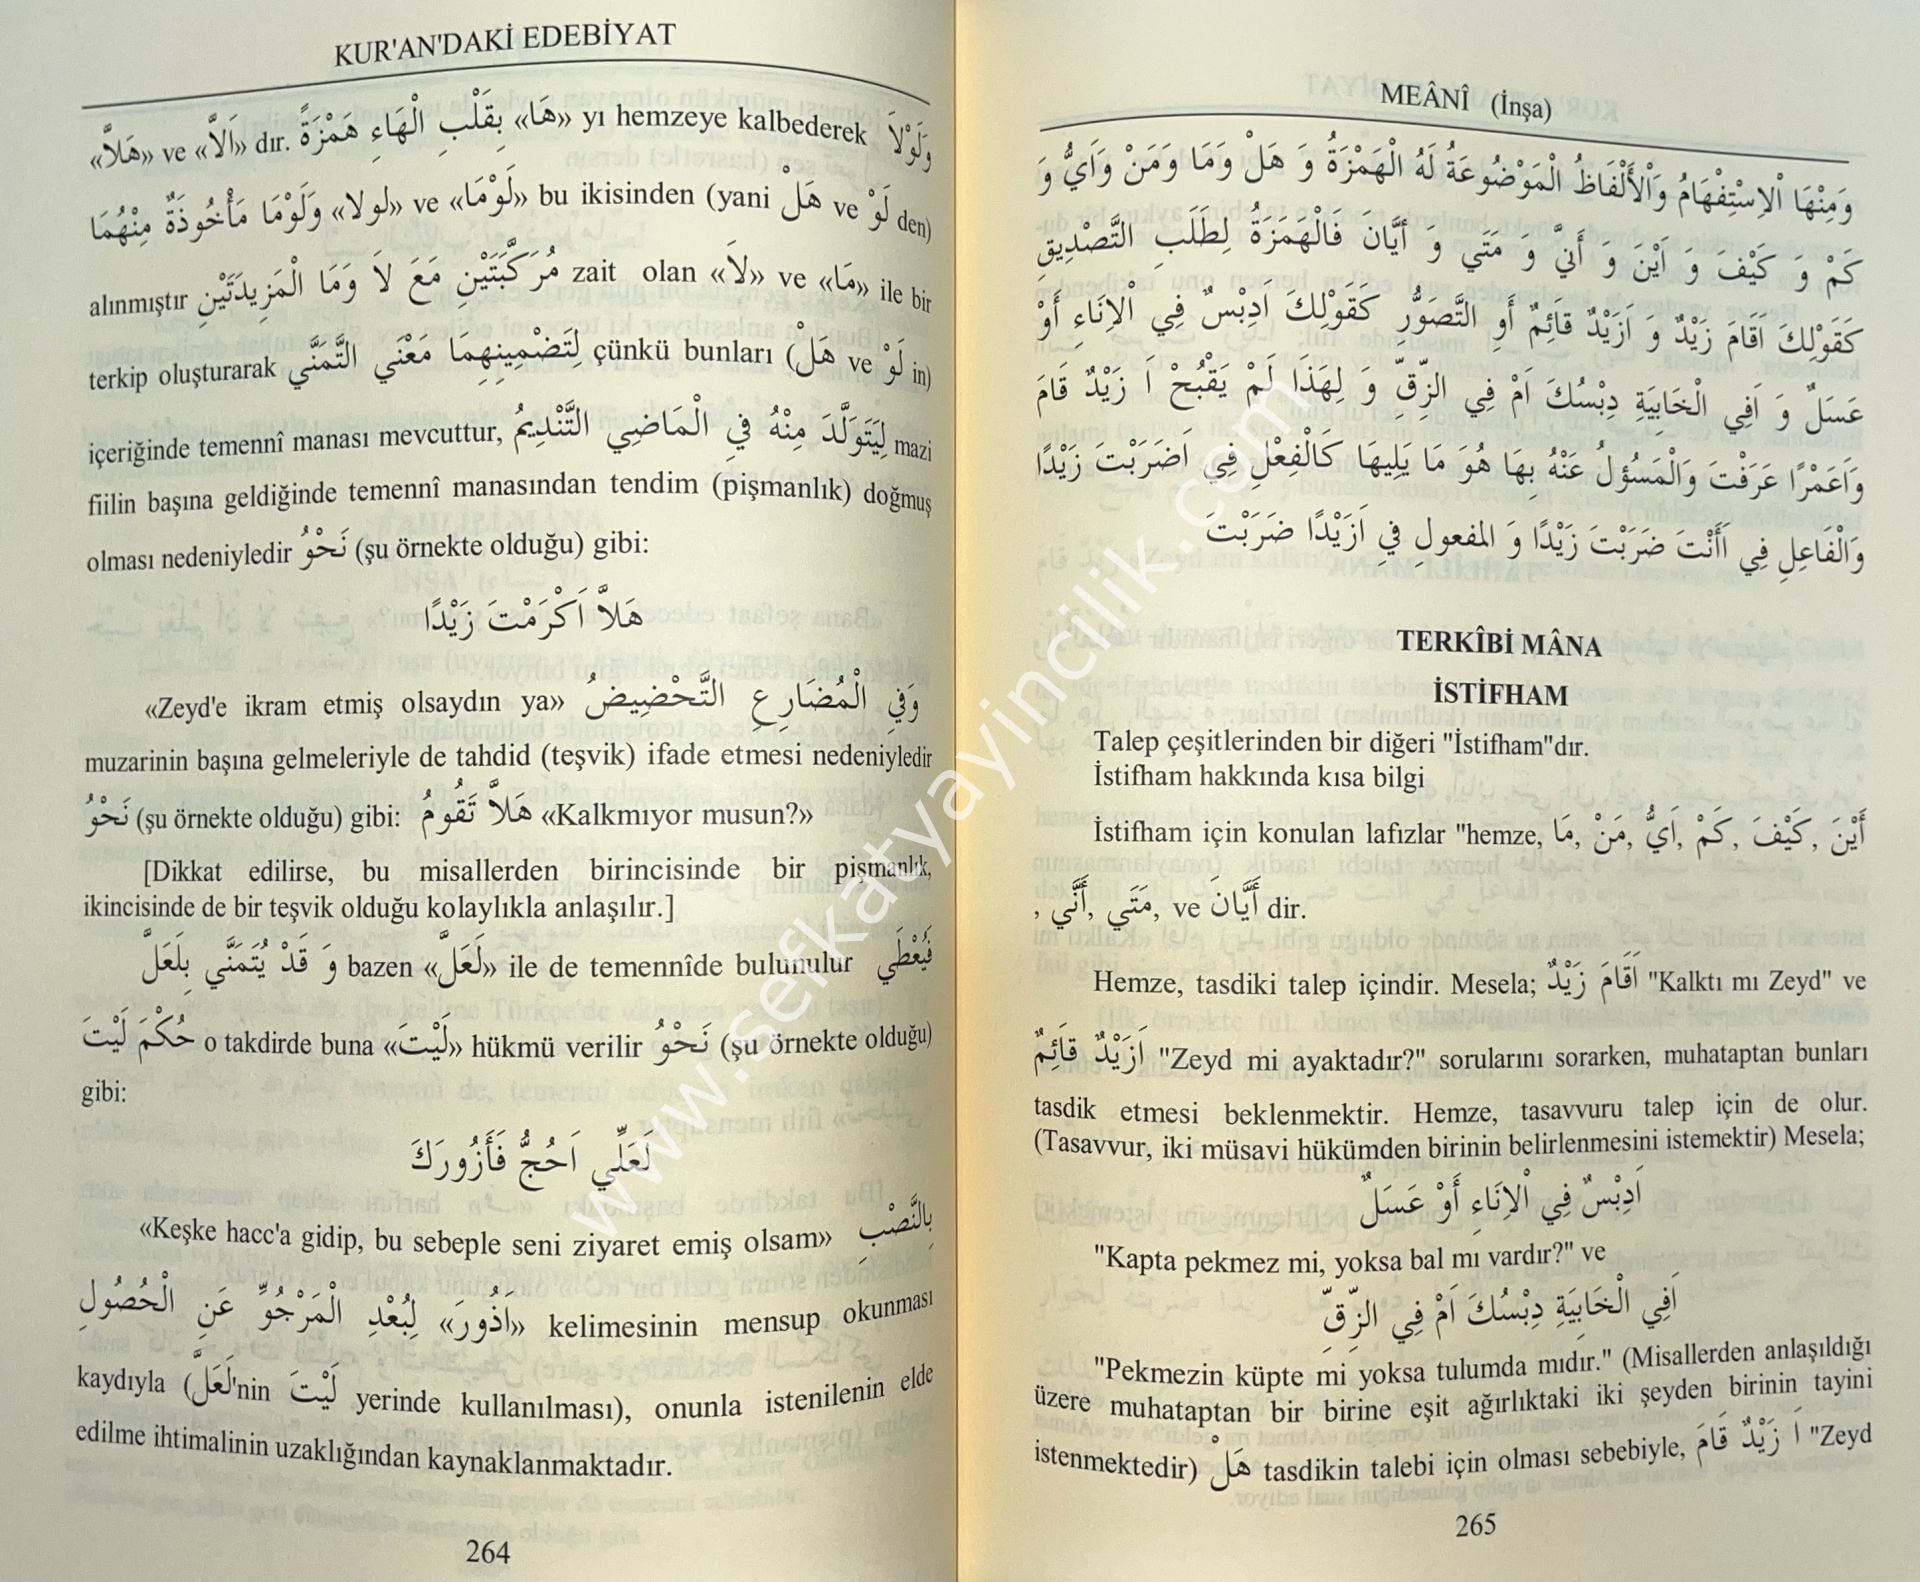 KUR'AN'DAKİ EDEBİYAT
«هَلاَّ» ve «اَلاَّ» dır. هَا» بِقَلْبِ الْهَاءِ هَمْزَةً» yı hemzeye kalbederek وَلَوْلاَ
وَلَوْمَا مَأْخُوذَةٌ مِنْهُمَا «لولا» ve «لَوْمَا» bu ikisinden (yani هَلْ ve لَوْ den)
alınmıştır مُرَكَّبَتَيْنِ مَعَ لاَ وَمَا الْمَزِيدَتَيْنِ zait olan «لاَ» ve «مَا» ile bir
terkip oluşturarak لِتَضْمِينِهِمَا مَعْنَي التَّمَنَّي çünkü bunları (هَلْ ve لَوْ in)
içeriğinde temennî manası mevcuttur, لِيَتَوَلَّدَ مِنْهُ فيِ الْمَاضِي التَّنْدِيمُ mazi
fiilin başına geldiğinde temennî manasından tendim (pişmanlık) doğmuş
olması nedeniyledir نَحْوُ (şu örnekte olduğu) gibi:
هَلاَّ اَكْرَمْتَ زَيْدًا
«Zeyd'e ikram etmiş olsaydın ya» وَفيِ الْمُضَارِعِ التَّحْضِيضُ
muzarinin başına gelmeleriyle de tahdid (teşvik) ifade etmesi nedeniyledir
نَحْوُ (şu örnekte olduğu) gibi: هَلاَّ تَقُومُ «Kalkmıyor musun?»
[Dikkat edilirse, bu misallerden birincisinde bir pişmanlık,
ikincisinde de bir teşvik olduğu kolaylıkla anlaşılır.]
وَ قَدْ يُتَمَنَّي بِلَعَلَّ bazen «لَعَلَّ» ile de temennîde bulunulur فَيُعْطَي
حُكْمَ لَيْتَ o takdirde buna «لَيْتَ» hükmü verilir نَحْوُ (şu örnekte olduğu)
gibi:
لَعَلِّي اَحُجُّ فَأَزُورَكَ
«Keşke hacc'a gidip, bu sebeple seni ziyaret emiş olsam» بِالنَّصْبِ
لِبُعْدِ الْمَرْجُوِّ عَنِ الْحُصُولِ «اَذُورَ» kelimesinin mensup okunması
kaydıyla (لَعَلَّ'nin لَيْتَ yerinde kullanılması), onunla istenilenin elde
edilme ihtimalinin uzaklığından kaynaklanmaktadır.
264
MEÂNÎ (İnşa)
وَمِنْهَا اْلاِسْتِفْهَامُ وَاْلأَلْفَاظُ الْمَوْضُوعَةُ لَهُ الْهَمْزَةُ وَ هَلْ وَمَا وَمَنْ وَاَيُّ وَ
كَمْ وَ كَيْفَ وَ اَيْنَ وَ أَنيَّ وَ مَتَي وَ أَيَّانَ فَالْهَمَزَةُ لِطَلَبِ التَّصْدِيقِ
كَقَوْلِكَ اَقَامَ زَيْدٌ وَ اَزَيْدٌ قَائِمٌ أَوِ التَّصَوُّرِ كَقَوْلِكَ اَدِبْسٌ فِي اْلاِنَاءِ أَوْ
عَسَلٌ وَ اَفِي الْخَابِيَةِ دِبْسُكَ اَمْ فِي الزِّقِّ وَ لِهَذَا لَمْ يَقْبُحْ اَ زَيْدٌ قَامَ
وَاَعَمْرًا عَرَفْتَ وَالْمَسْؤُلُ عَنْهُ بِهَا هُوَ مَا يَلِيهَا كَالْفِعْلِ فِي اَضَرَبْتَ زَيْدًا
وَالْفَاعِلِ فِي اَأَنْتَ ضَرَبْتَ زَيْدًا وَ المفعولِ فيِ اَزَيْدًا ضَرَبْتَ
TERKÎBİ MÂNA
İSTİFHAM
Talep çeşitlerinden bir diğeri "İstifham"dır.
İstifham hakkında kısa bilgi
İstifham için konulan lafızlar "hemze, مَا, مَنْ, اَيُّ, كَمْ, كَيْفَ, أَيْنَ
, أَنَّي, مَتَي, ve أَيَّانَ dir.
Hemze, tasdiki talep içindir. Mesela; اَقَامَ زَيْدٌ "Kalktı mı Zeyd" ve
اَزَيْدٌ قَائِمٌ "Zeyd mi ayaktadır?" sorularını sorarken, muhataptan bunları
tasdik etmesi beklenmektir. Hemze, tasavvuru talep için de olur.
(Tasavvur, iki müsavi hükümden birinin belirlenmesini istemektir) Mesela;
اَدِبْسٌ فِي اْلاِنَاءِ أَوْ عَسَلٌ
"Kapta pekmez mi, yoksa bal mı vardır?" ve
اَفِي الْخَابِيَةِ دِبْسُكَ اَمْ فِي الزِّقِّ
"Pekmezin küpte mi yoksa tulumda mıdır." (Misallerden anlaşıldığı
üzere muhataptan bir birine eşit ağırlıktaki iki şeyden birinin tayini
istenmektedir) هَلْ tasdikin talebi için olması sebebiyle, اَ زَيْدٌ قَامَ "Zeyd
265
www.sefkatyayincilik.com